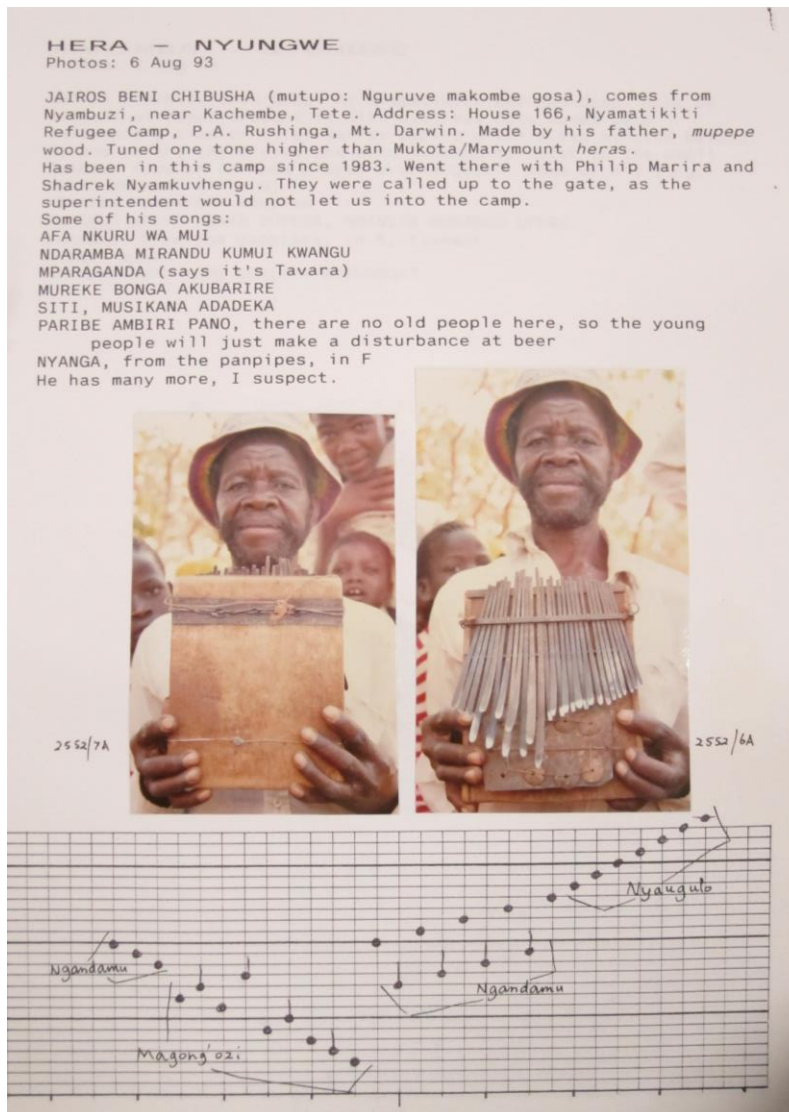 HERA - NYUNGWE
Photos: 6 Aug 93
JAIROS BENI CHIBUSHA (mutupo: Nguruve makombe gosa), comes from
Nyambuzi, near Kachembe, Tete. Address: House 166, Nyamatikiti
Refugee Camp, P.A. Rushinga, Mt. Darwin. Made by his father, mupepe
wood. Tuned one tone higher than Mukota/Marymount heras.
Has been in this camp since 1983. Went there with Philip Marira and
Shadrek Nyamkuvhengu. They were called up to the gate, as the
superintendent would not let us into the camp.
Some of his songs:
AFA NKURU WA MUI
NDARAMBA MIRANDU KUMUI KWANGU
MPARAGANDA (says it's Tavara)
MUREKE BONGA AKUBARIRE
SITI, MUSIKANA ADADEKA
PARIBE AMBIRI PANO, there are no old people here, so the young
people will just make a disturbance at beer
NYANGA, from the panpipes, in F
He has many more, I suspect.
2552/7A
2552/6A
Nyaugulo
Ngandamu
Ngandamu
Magong'ozi